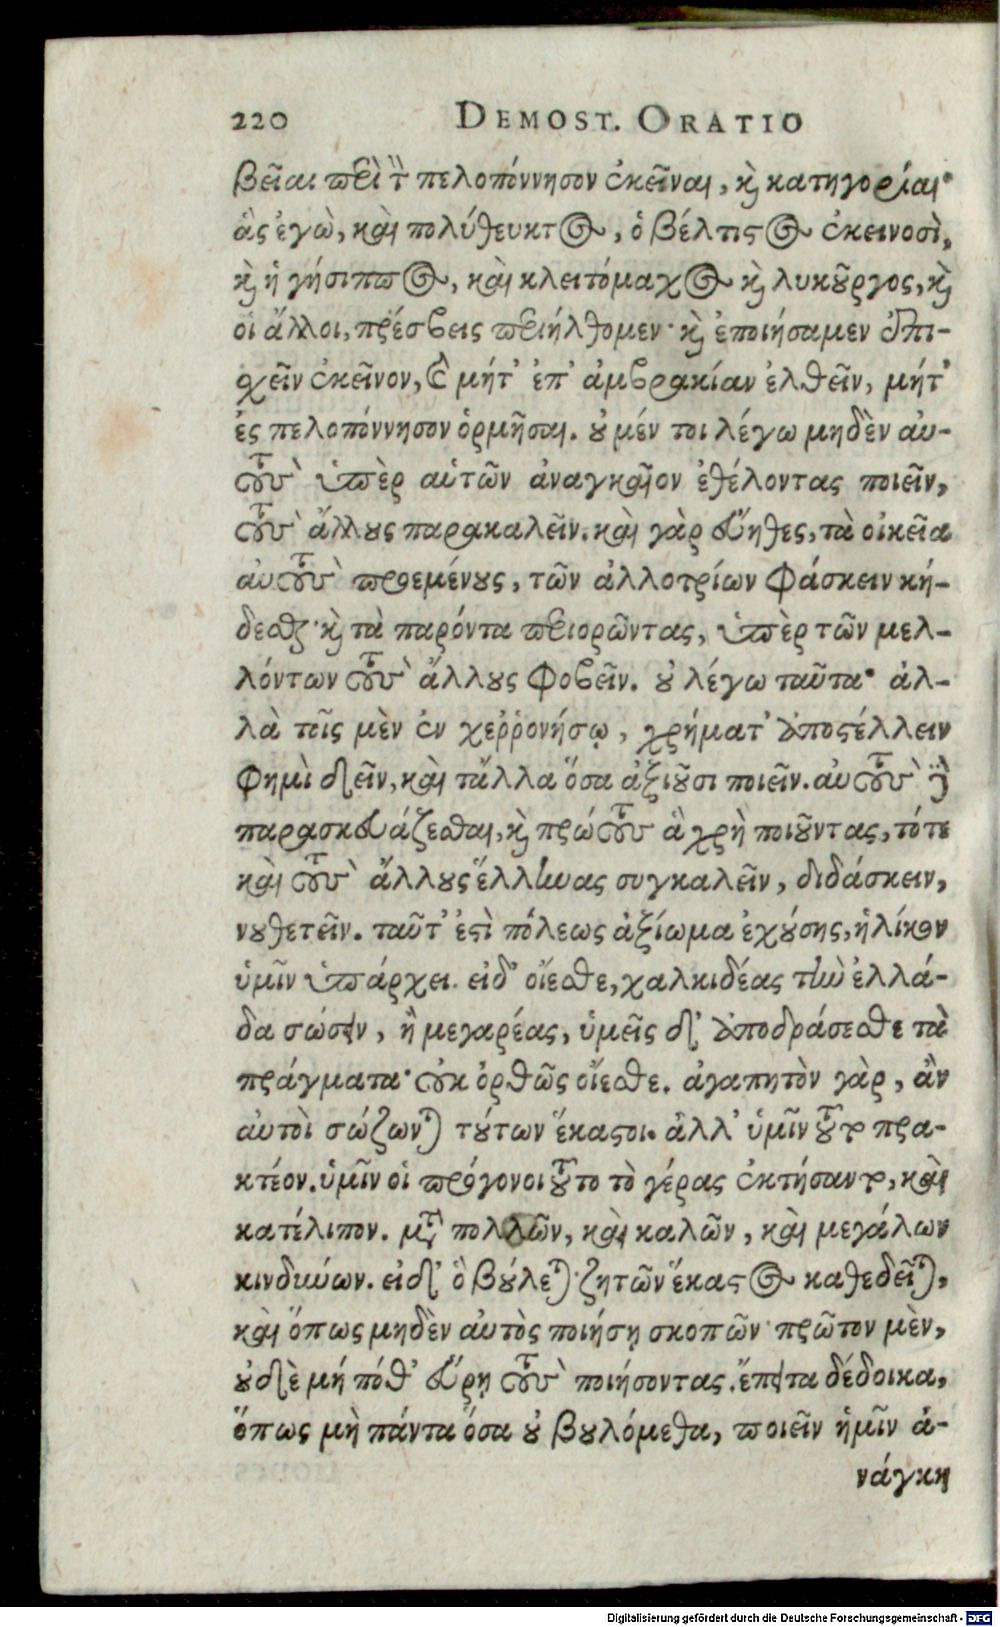 220 DEMOST. ORATIO
βεῖαι περὶ τὴν πελοπόννησον ἐκεῖναι, καὶ κατηγορίαι·
ἃς ἐγὼ, καὶ πολύθευκτος, ὁ βέλτιστος ἐκεινοσὶ,
καὶ ἡγήσιππος, καὶ κλειτόμαχος καὶ λυκοῦργος, καὶ
οἱ ἄλλοι, πρέσβεις περιήλθομεν· καὶ ἐποιήσαμεν ἐπι-
χεῖν ἐκεῖνον, καὶ μήτ' ἐπ' ἀμβρακίαν ἐλθεῖν, μήτ'
ἐς πελοπόννησον ὁρμῆσαι. οὐ μέν τοι λέγω μηδὲν αὐ-
τοὺς ὑπὲρ αὑτῶν ἀναγκαῖον ἐθέλοντας ποιεῖν,
τοὺς ἄλλους παρακαλεῖν. καὶ γὰρ εὔηθες, τὰ οἰκεῖα
αὐτοὺς προεμένους, τῶν ἀλλοτρίων φάσκειν κή-
δεσθαι· καὶ τὰ παρόντα περιορῶντας, ὑπὲρ τῶν μελ-
λόντων τοὺς ἄλλους φοβεῖν. οὐ λέγω ταῦτα· ἀλ-
λὰ τοῖς μὲν ἐν χεῤῥονήσῳ, χρήματ' ἀποστέλλειν
φημὶ δεῖν, καὶ τἄλλα ὅσα ἀξιοῦσι ποιεῖν. αὐτοὺς δὲ
παρασκευάζεσθαι, καὶ πρώτους ἃ χρὴ ποιοῦντας, τότε
καὶ τοὺς ἄλλους ἕλληνας συγκαλεῖν, διδάσκειν,
νουθετεῖν. ταῦτ' ἐστὶ πόλεως ἀξίωμα ἐχούσης, ἡλίκον
ὑμῖν ὑπάρχει. εἰ δ' οἴεσθε, χαλκιδέας τὴν ἑλλά-
δα σώσειν, ἢ μεγαρέας, ὑμεῖς δ' ἀποδράσεσθε τὰ
πράγματα· οὐκ ὀρθῶς οἴεσθε. ἀγαπητὸν γὰρ, ἂν
αὐτοὶ σώζωνται τούτων ἕκαστοι. ἀλλ' ὑμῖν τοῦτο πρα-
κτέον. ὑμῖν οἱ πρόγονοι τοῦτο τὸ γέρας ἐκτήσαντο, καὶ
κατέλιπον. μετὰ πολλῶν, καὶ καλῶν, καὶ μεγάλων
κινδύνων. εἰ δ' ὃ βούλεται· ζητῶν ἕκαστος καθεδεῖται,
καὶ ὅπως μηδὲν αὐτὸς ποιήσῃ σκοπῶν· πρῶτον μὲν,
οὐδὲ μή πόθ' εὕρῃ τοὺς ποιήσοντας. ἔπειτα δέδοικα,
ὅπως μὴ πάντα ὅσα οὐ βουλόμεθα, ποιεῖν ἡμῖν ἀ-
νάγκη
Digitalisierung gefördert durch die Deutsche Forschungsgemeinschaft - DFG